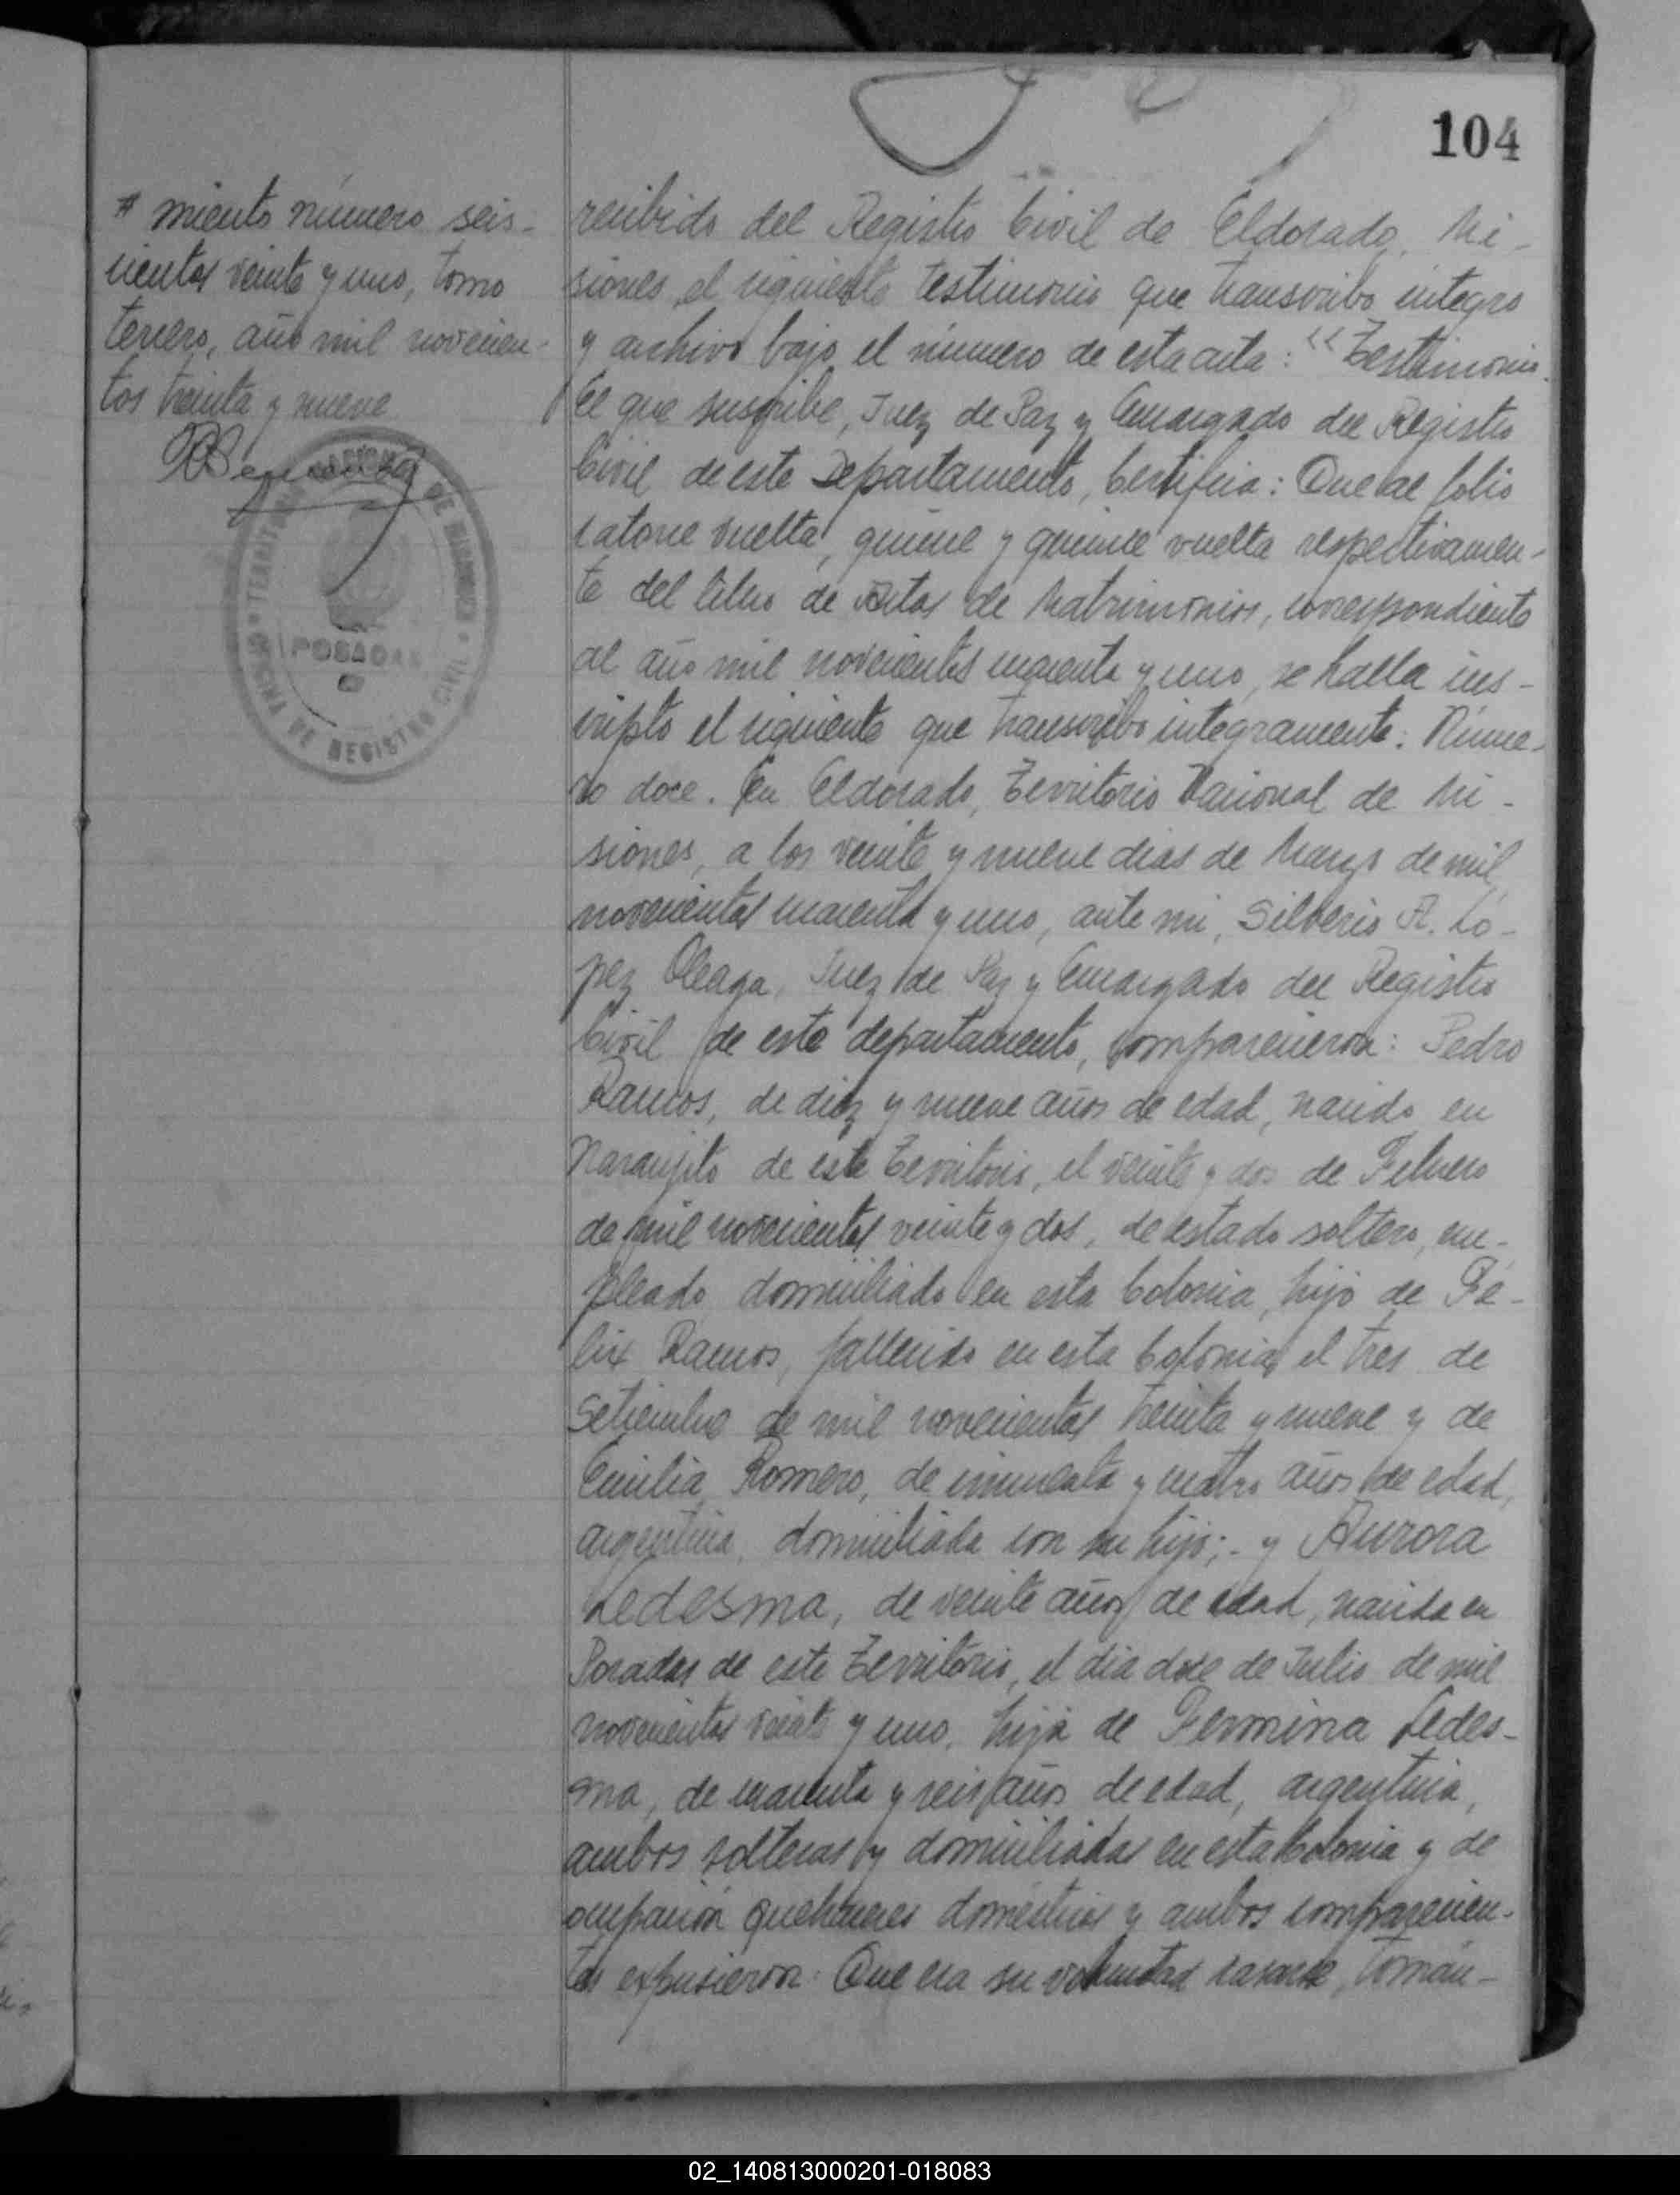 104
# miento número seis-
cientos veinte y uno, tomo
tercero, año mil novecien-
tos treinta y nueve
TERRITORIO NACIONAL DE MISIONES
POSADAS
OFICINA DE REGISTRO CIVIL
recibido del Registro Civil de Eldorado, Mi-
siones, el siguiente testimonio que transcribo integro
y archivo bajo el número de esta acta: "Testimonio.
El que suscribe, Juez de Paz y Encargado del Registro
Civil de este Departamento, Certifica: Que al folio
catorce vuelta, quince y quince vuelta respectivamen-
te del libro de Actas de Matrimonios, correspondiente
al año mil novecientos cuarenta y uno, se halla ins-
cripto el siguiente que transcribo integramente: Núme-
ro doce. En Eldorado, Territorio Nacional de Mi-
siones, a los veinte y nueve dias de Marzo de mil
novecientos cuarenta y uno, ante mi, Silberio A. Ló-
pez Oleaga, Juez de Paz y Encargado del Registro
Civil de este departamento, comparecieron: Pedro
Ramos, de diez y nueve años de edad, nacido en
Naranjito de este Territorio, el veinte y dos de Febrero
de mil novecientos veinte y dos, de estado soltero, em-
pleado, domiciliado en esta Colonia, hijo de Fé-
lix Ramos, fallecido en esta Colonia el tres de
Setiembre de mil novecientos treinta y nueve y de
Emilia Romero, de cincuenta y cuatro años de edad,
argentina, domiciliada con su hijo;- y Aurora
Ledesma, de veinte años de edad, nacida en
Posadas de este Territorio, el dia doce de Julio de mil
novecientos veinte y uno, hija de Fermina Ledes-
ma, de cuarenta y seis años de edad, argentina,
ambas solteras y domiciliadas en esta Colonia y de
ocupación quehaceres domésticos y ambos comparecien-
tes expusieron: Que era su voluntad casarse, tomán-
02_140813000201-018083